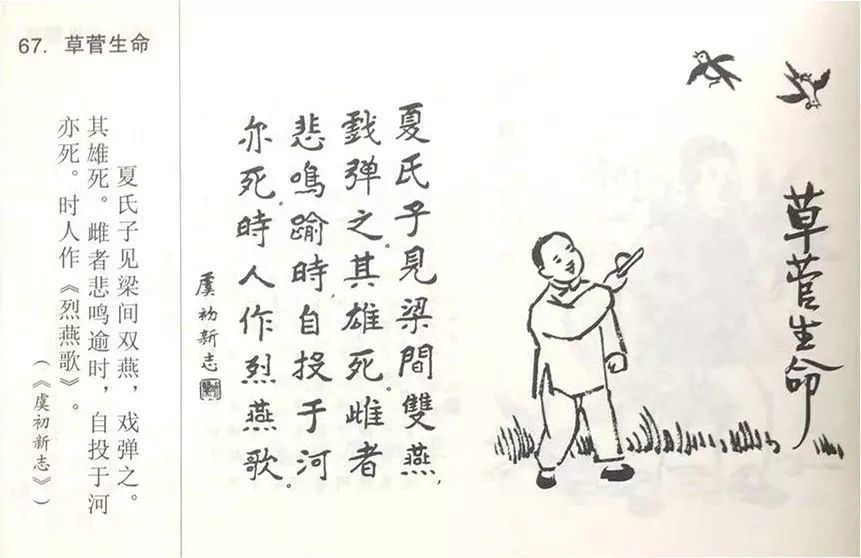 67. 草菅生命
夏氏子见梁间双燕，戏弹之。
其雄死。雌者悲鸣逾时，自投于河
亦死。时人作《烈燕歌》。
（《虞初新志》）
草菅生命
夏氏子見梁間雙燕，
戲弹之。其雄死。雌者
悲鳴踰時，自投于河
亦死。時人作烈燕歌。
虞初新志